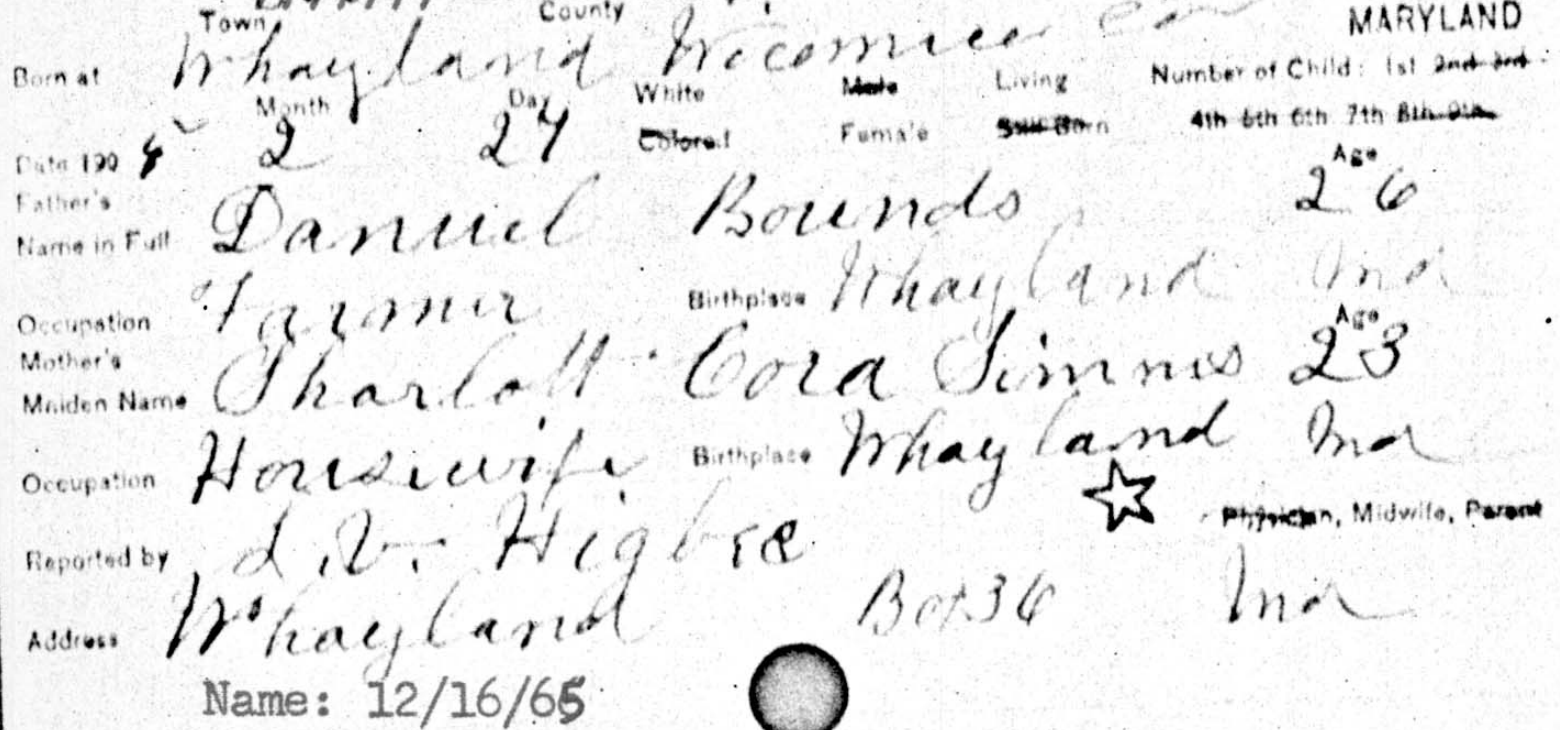 Town County MARYLAND
Born at Whayland Wicomico Co Number of Child: 1st 2nd 3rd
Month Day White Male Living
Colored Female Still Born 4th 5th 6th 7th 8th 9th
Date 190 2 27
Father's Age
Name in Full Danuel Bounds 26
Occupation Farmer Birthplace Whayland Md
Mother's Age
Maiden Name Sharlott Cora Simms 23
Occupation Housewife Birthplace Whayland Md
Physician, Midwife, Parent
Reported by L. V. Higbee
Address Whayland Box 36 Md
Name: 12/16/65